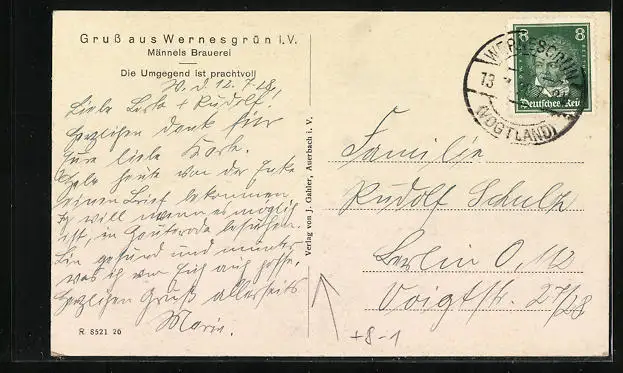 Gruß aus Wernesgrün i.V.
Männels Brauerei
Die Umgegend ist prachtvoll
W. d. 12. 7. 28.
Liebe Berta + Rudolf!
Herzlichen Dank für
Eure liebe Karte.
Habe heute von der
einen Brief bekommen
Er will wenn es möglich
ist, in besuchen.
Bin gesund und munter
was ich von Euch auch hoffe,
Herzlichen Gruß allerseits
Marie.
R 8521 26
Verlag von J. Gahler, Auerbach i. V.
WERNESGRÜN
13
(VOGTLAND)
8 8
Deutsches Reich
Familie
Rudolf Schulz
Berlin O. 112
Voigtstr. 27/28
+8-1